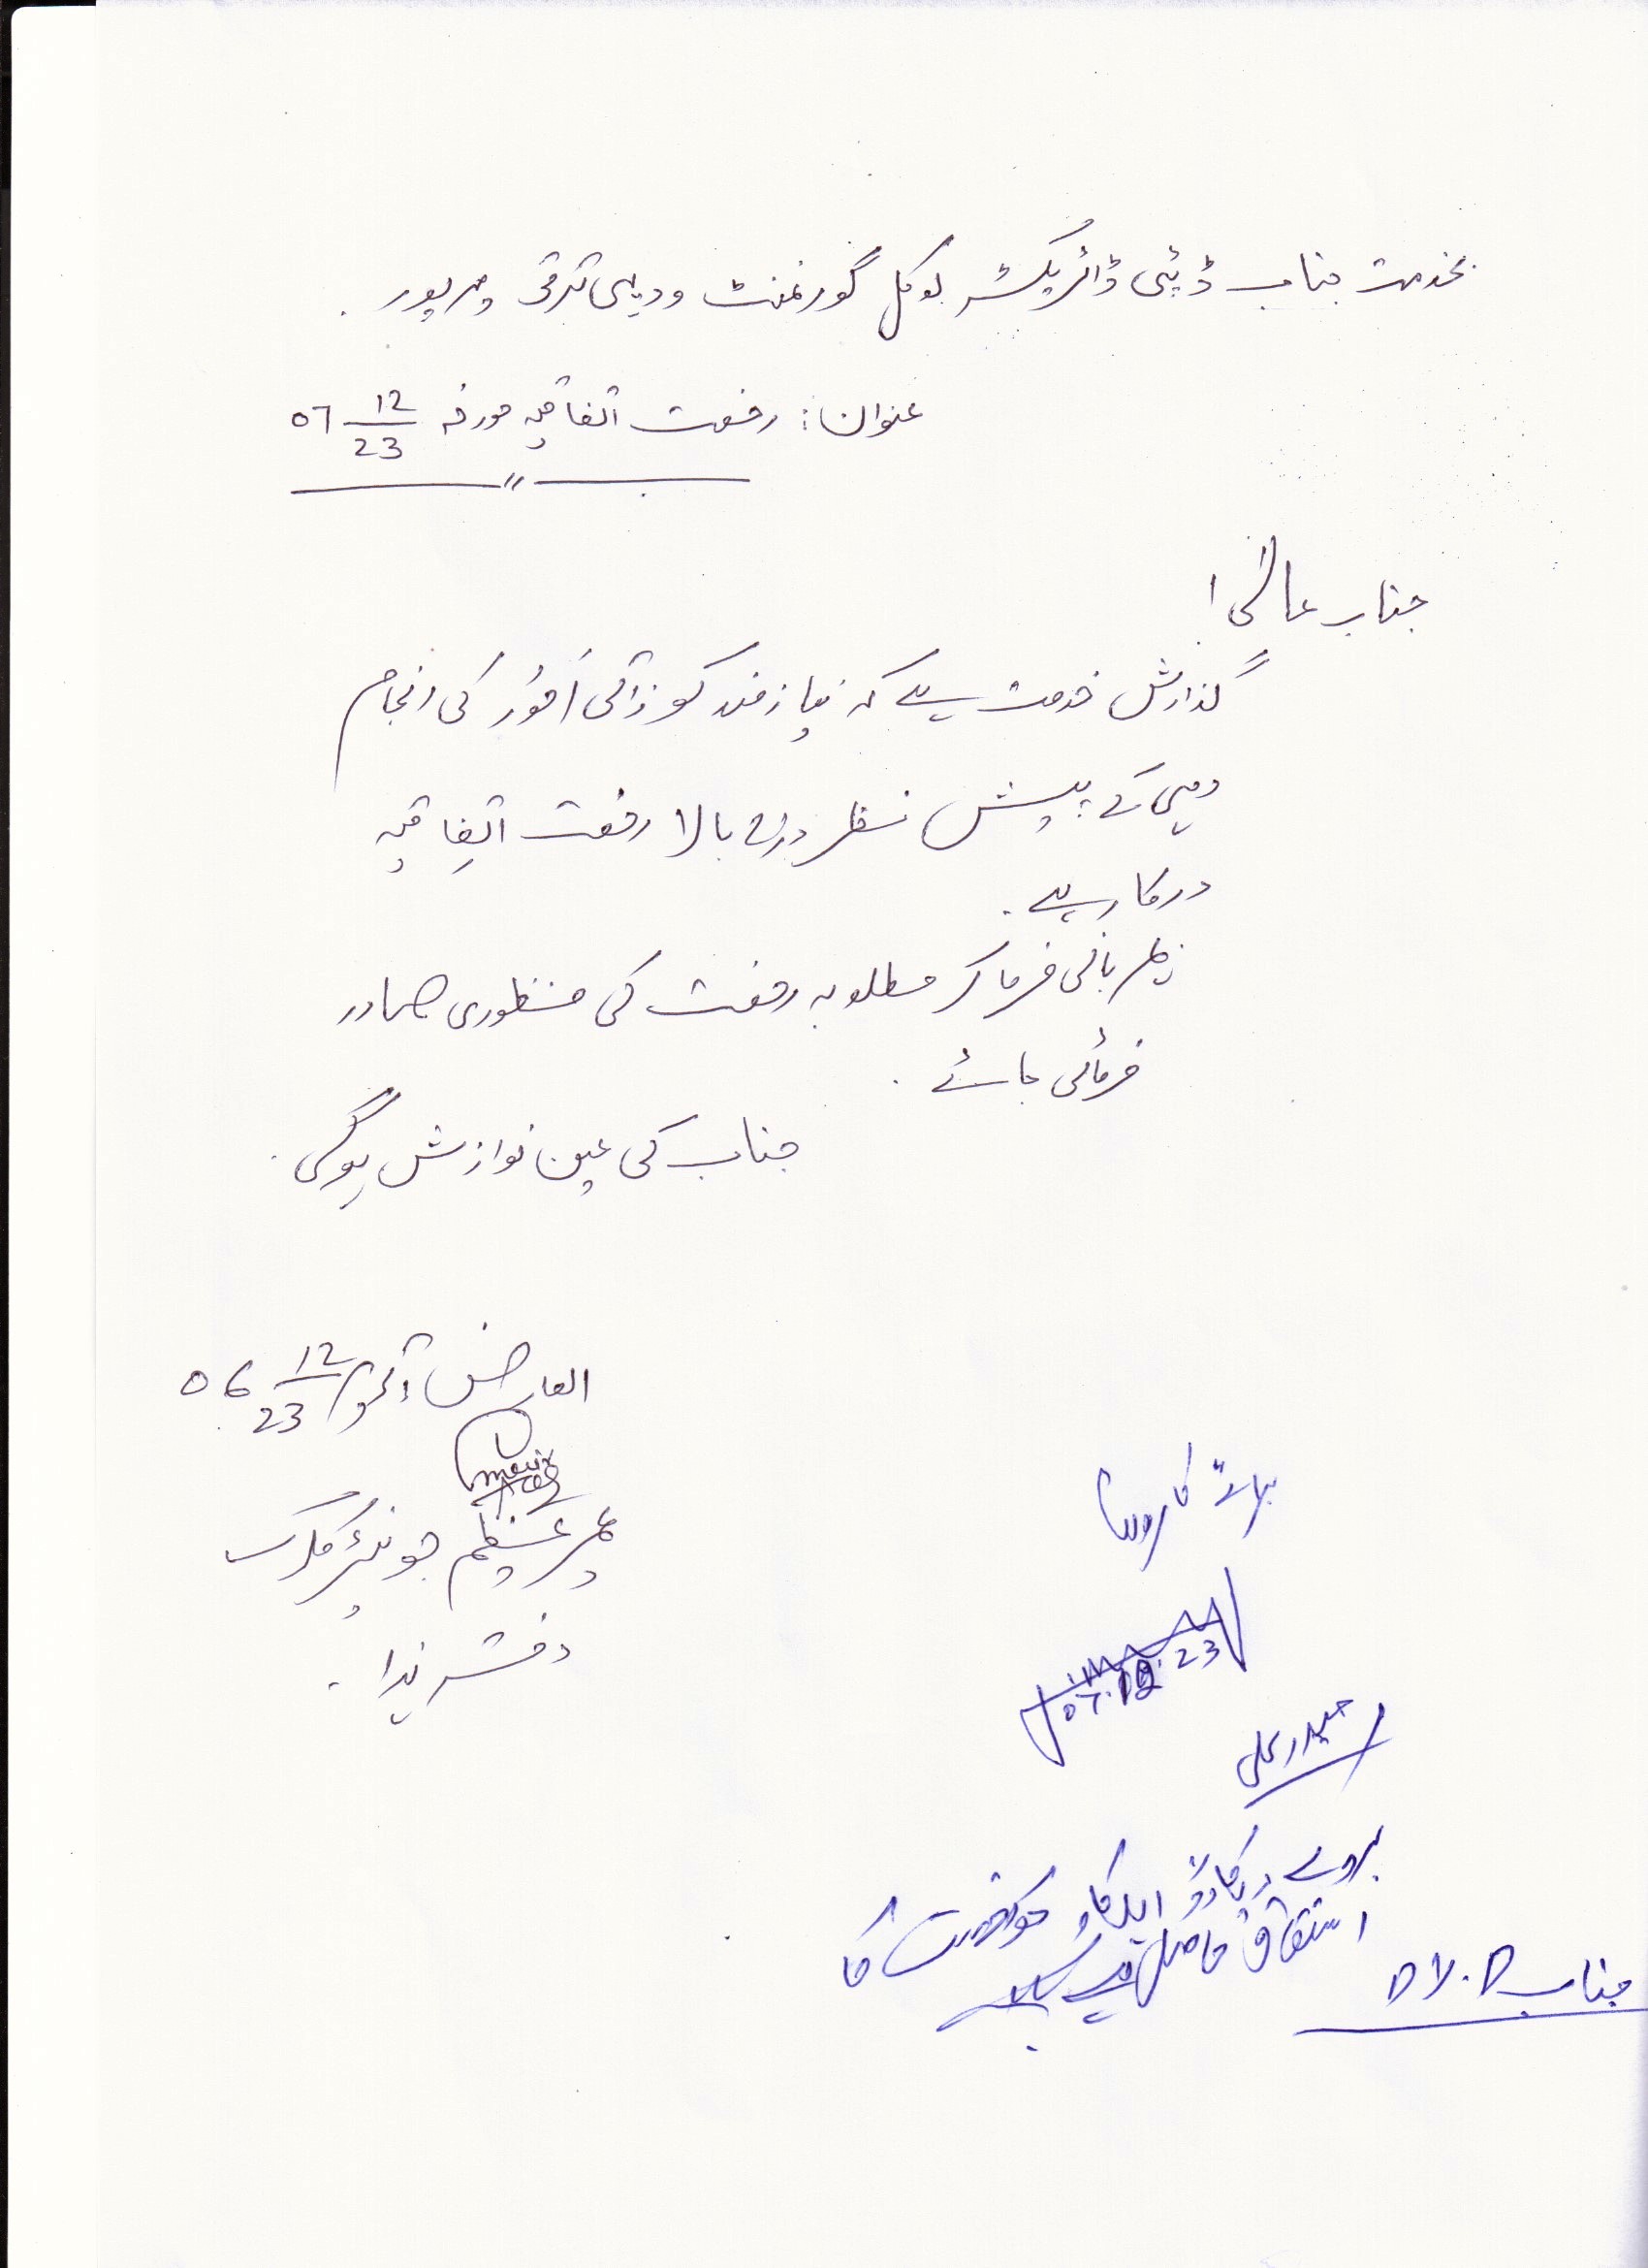 بخدمت جناب ڈپٹی ڈائریکٹر لوکل گورنمنٹ و دیہی ترقی میرپور۔
عنوان: رخصت اتفاقیہ مورخہ 06 12/23
جناب عالی!
گذارش خدمت ہے کہ نیازمند کو ذاتی اُمور کی انجام
دہی کے پیش نظر درج بالا رخصت اتفاقیہ
درکار ہے۔
مہربانی فرما کر مطلوبہ رخصت کی منظوری صادر
فرمائی جائے۔
جناب کی عین نوازش ہوگی۔
العارض المرقوم 06 12/23
عمیر عظیم جونیئر کلرک
دفتر ہذا۔
برائے کاروائی
07.12.23
حیدر علی
بروئے ریکارڈ اہلکار مذکور رخصت کا
استحقاق حاصل ہے
جناب D.D